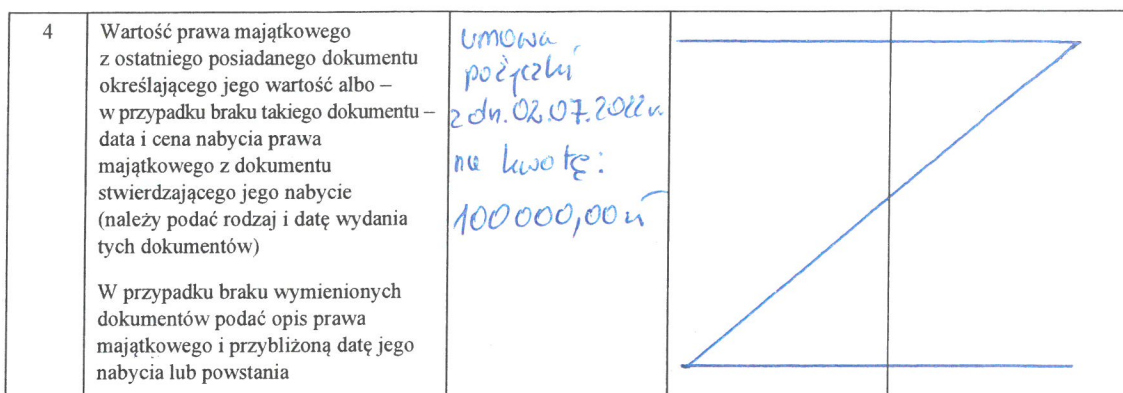 4
Wartość prawa majątkowego
z ostatniego posiadanego dokumentu
określającego jego wartość albo –
w przypadku braku takiego dokumentu –
data i cena nabycia prawa
majątkowego z dokumentu
stwierdzającego jego nabycie
(należy podać rodzaj i datę wydania
tych dokumentów)
W przypadku braku wymienionych
dokumentów podać opis prawa
majątkowego i przybliżoną datę jego
nabycia lub powstania
umowa
pożyczki
z dn. 02.07.2022 r.
na kwotę:
100 000,00 zł